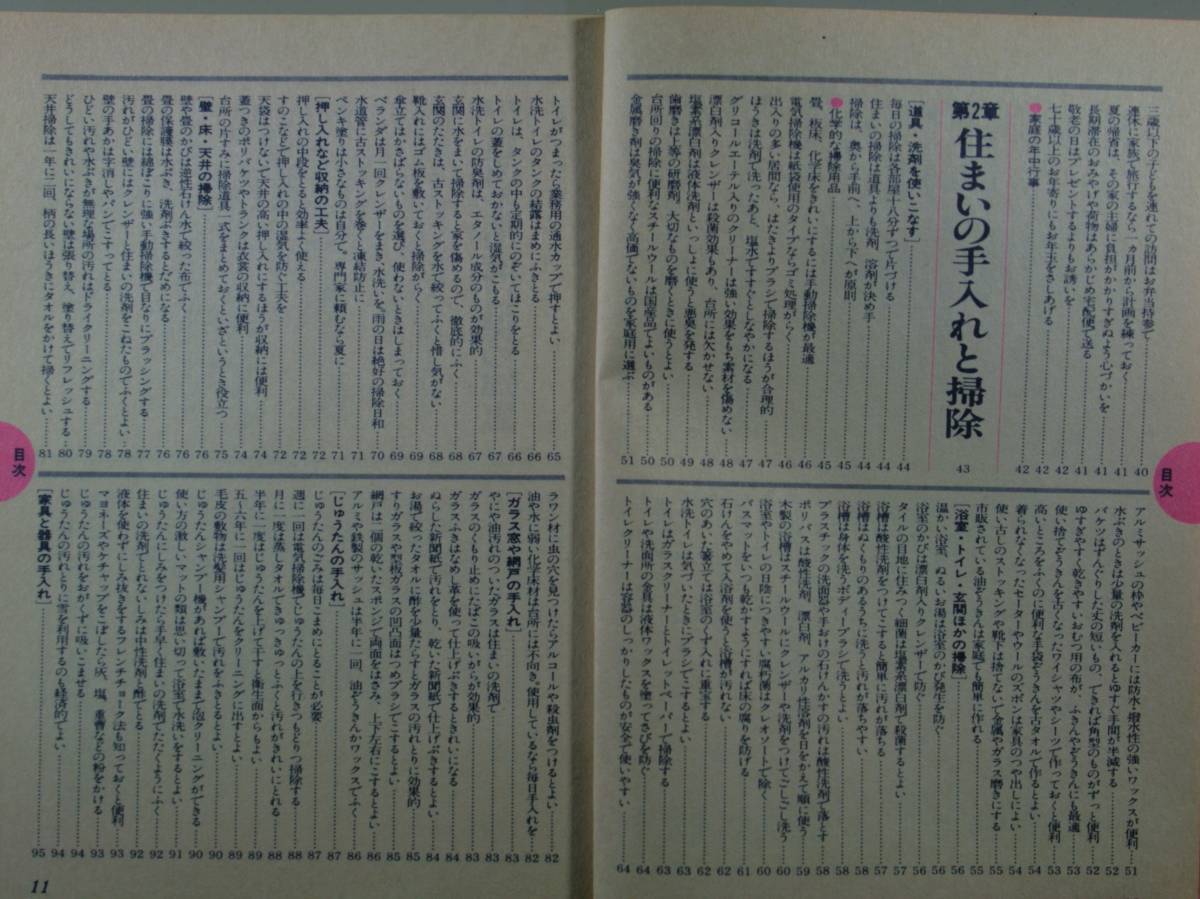 三歳以下の子どもを連れての送迎はお弁当持参で 40
連休に家族で旅行するなら一カ月前から計画を練っておく 41
夏の帰省は、その家の主婦に負担がかかりすぎぬよう心づかいを 41
長期滞在のおみやげや荷物はあらかじめ宅配便で送る 41
敬老の日はプレゼントするよりもお誘いを 42
七十歳以上のお年寄りにもお年玉をさしあげる 42
●家庭の年中行事 42
第2章 住まいの手入れと掃除 43
[道具・洗剤を使いこなす]
毎日の掃除は各部屋十八分ずつで片づける 44
住まいの掃除は道具よりも洗剤、溶剤が決め手 44
掃除は、奥から手前へ、上から下へが原則 45
●化学的な掃除用品 45
畳、板床、化学床をきれいにするには手動掃除機が最適 45
電気掃除機は紙袋使用のタイプならゴミ処理がらく 46
出入りの多い居間なら、はたきよりブラシで掃除するほうが合理的 47
ほうきは洗剤で洗ったあと、塩水ですすぐとしなやかになる 47
グリコールエーテル入りのクリーナーは強い効果をもち素材を傷めない 48
漂白剤入りクレンザーは殺菌効果もあり、台所には欠かせない 48
塩素系漂白剤は液体洗剤といっしょに使うと悪臭を発する 49
歯磨きは上等の研磨剤。大切なものを磨くときに使うとよい 50
台所回りの掃除に便利なスチールウールは国産品でよいものがある 50
金属磨き剤は臭気が強くなく高価でないものを家庭用に選ぶ 51
アルミサッシュの枠やベビーカーには防水・撥水性の強いワックスが便利 51
水ぶきのときは少量の洗剤を入れるとゆすぐ手間が半減する 52
バケツはずんぐりした丈の短いもの、できれば角型のものがずっと便利 52
ゆすぎやすく乾きやすいおむつ用の布が、ふきんやぞうきんにも最適 53
使い捨てぞうきんを古くなったワイシャツやシーツで作っておくと便利 53
高いところをふくのに便利な手袋ぞうきんを古タオルで作るとよい 54
着られなくなったセーターやウールのズボンは家具のつや出しによい 54
使い古しのストッキングや靴下は捨てないで金属やガラス磨きにする 55
市販されている油ぞうきんは家庭でも簡単に作れる 55
[浴室・トイレ・玄関ほかの掃除]
温かい浴室、ぬるいお湯は浴室のかび発生を防ぐ 56
浴室のかびは漂白剤入りクレンザーで落とす 56
タイルの目地に住みつく細菌は塩素系漂白剤で殺菌するとよい 56
浴槽は酸性洗剤をつけてこすると簡単に汚れが落ちる 57
浴槽はぬくもりのあるうちに洗うと汚れが落ちやすい 57
浴槽は身体を洗うボディーブラシで洗うとよい 58
プラスチックの洗面器や手おけの石けんかすの汚れは酸性洗剤で落とす 58
ポリバスは酸性洗剤、漂白剤、アルカリ性洗剤を日をかえて順に使う 59
木製の浴槽はスチールウールにクレンザーや洗剤をつけてごしごし洗う 60
浴室やトイレの日陰につきやすい腐朽菌はクレオソートで除く 60
バスマットをいつも乾かすようにすれば床の腐りを防げる 61
石けんをやめて入浴剤を使うと浴槽が汚れない 62
穴のあいた蓋立ては浴室のくず入れに重宝する 62
水洗トイレは気づいたときにブラシでこするとよい 63
トイレはグラスクリーナーとトイレットペーパーで掃除する 63
トイレや洗面所の金具は液体ワックスを塗ってさびを防ぐ 64
トイレクリーナーは容器のしっかりしたものが安全で使いやすい 64
トイレがつまったら業務用の通水カップで押すとよい 65
水洗トイレのタンクの結露はまめにふきとる 66
トイレは、タンクの中も定期的にのぞいてほこりをとる 66
トイレの蓋をしめておかないと湿気がこもる 67
水洗トイレの防臭剤は、エタノール成分のものが効果的 67
玄関に水をまいて掃除すると家を傷めるので、徹底的にふく 68
玄関のたたきは、古ストッキングを水で絞ってふくと惜し気がない 68
靴入れにはゴム板を敷いておくと掃除がらく 69
傘立てはかさばらないものを選び、使わないときはしまっておく 69
ベランダは月一回クレンザーをまき、水洗いを。雨の日は絶好の掃除日和 70
水道管に古ストッキングを巻くと凍結防止に 71
ペンキ塗りは小さなものは自分で。専門家に頼むなら夏に 71
[押し入れなど収納の工夫]
押し入れの中段をとると効率よく使える 72
すのこなどで押し入れの中の湿気を防ぐ工夫を 72
天袋はつけないで天井の高い押し入れにするほうが収納には便利 74
蓋つきのポリバケツやトランクは衣裳の収納に便利 74
台所の片すみに掃除道具一式をまとめておくといざというとき役立つ 75
[壁・床・天井の掃除]
壁や畳のかびは逆性石けん水で絞った布でふく 76
畳の保護膜は水ぶき、洗剤ぶきするとだめになる 76
畳の掃除には綿ぼこりに強い手動掃除機で目なりにブラッシングする 77
汚れがひどい壁にはクレンザーと住まいの洗剤をこねたものでふくとよい 78
壁の手あかは字消しやパンでこすってとる 78
ひどい汚れや水ぶきが無理な場所の汚れはドライクリーニングする 79
どうしてもきれいにならない壁は張り替え、塗り替えてリフレッシュする 80
天井掃除は一年に二回、柄の長いほうきにタオルをかけて掃くとよい 81
ラワン材に虫の穴を見つけたらアルコールや殺虫剤をつけるとよい 82
油や水に弱い化学床材は台所には不向き。使用しているなら毎日手入れを 82
[ガラス窓や網戸の手入れ]
やにや油汚れのついたガラスは住まいの洗剤で 83
ガラスのくもり止めにたばこの吸いがらが効果的 83
ガラスふきはなめし革を使って仕上げぶきするときれいになる 84
ぬらした新聞紙で汚れをとり、乾いた新聞紙で仕上げぶきするとよい 84
お湯で絞ったタオルに酢を少量たらすとガラスの汚れとりに効果的 85
すりガラスや型板ガラスの凹凸面はつめブラシでこするとよい 85
網戸は二個の乾いたスポンジで両面をはさみ、上下左右にこするとよい 86
アルミや鉄製のサッシュは半年に一回、油ぞうきんかワックスでふく 86
[じゅうたんの手入れ]
じゅうたんのごみは毎日こまめにとることが必要 87
週に一回は電気掃除機でじゅうたんの上を行きつもどりつ掃除する 88
月に一度は蒸しタオルできゅっきゅっとふくと汚れがきれいにとれる 88
半年に一度はじゅうたんを上げて干すと衛生面からもよい 88
五〜六年に一回はじゅうたんをクリーニングに出すとよい 89
毛皮の敷物は髪用シャンプーで汚れをふきとるとよい 89
じゅうたんシャンプー機があれば敷いたままで泡クリーニングができる 90
使い方の激しいマットの類は思い切って浴室で水洗いをするとよい 91
じゅうたんにしみをつけたら手早く住まいの洗剤でたたくようにふく 92
住まいの洗剤でとれないしみは中性洗剤と酢でとる 92
液体を使わずにしみ抜きをするフレンチチョーク法も知っておくと便利 93
マヨネーズやケチャップをこぼしたら灰、塩、重曹などの粉をかける 93
じゅうたんの汚れをおがくずに吸いこませる 94
じゅうたんの汚れとりに雪を利用するのも経済的でよい 94
[家具と器具の手入れ] 95
目次
目次
11